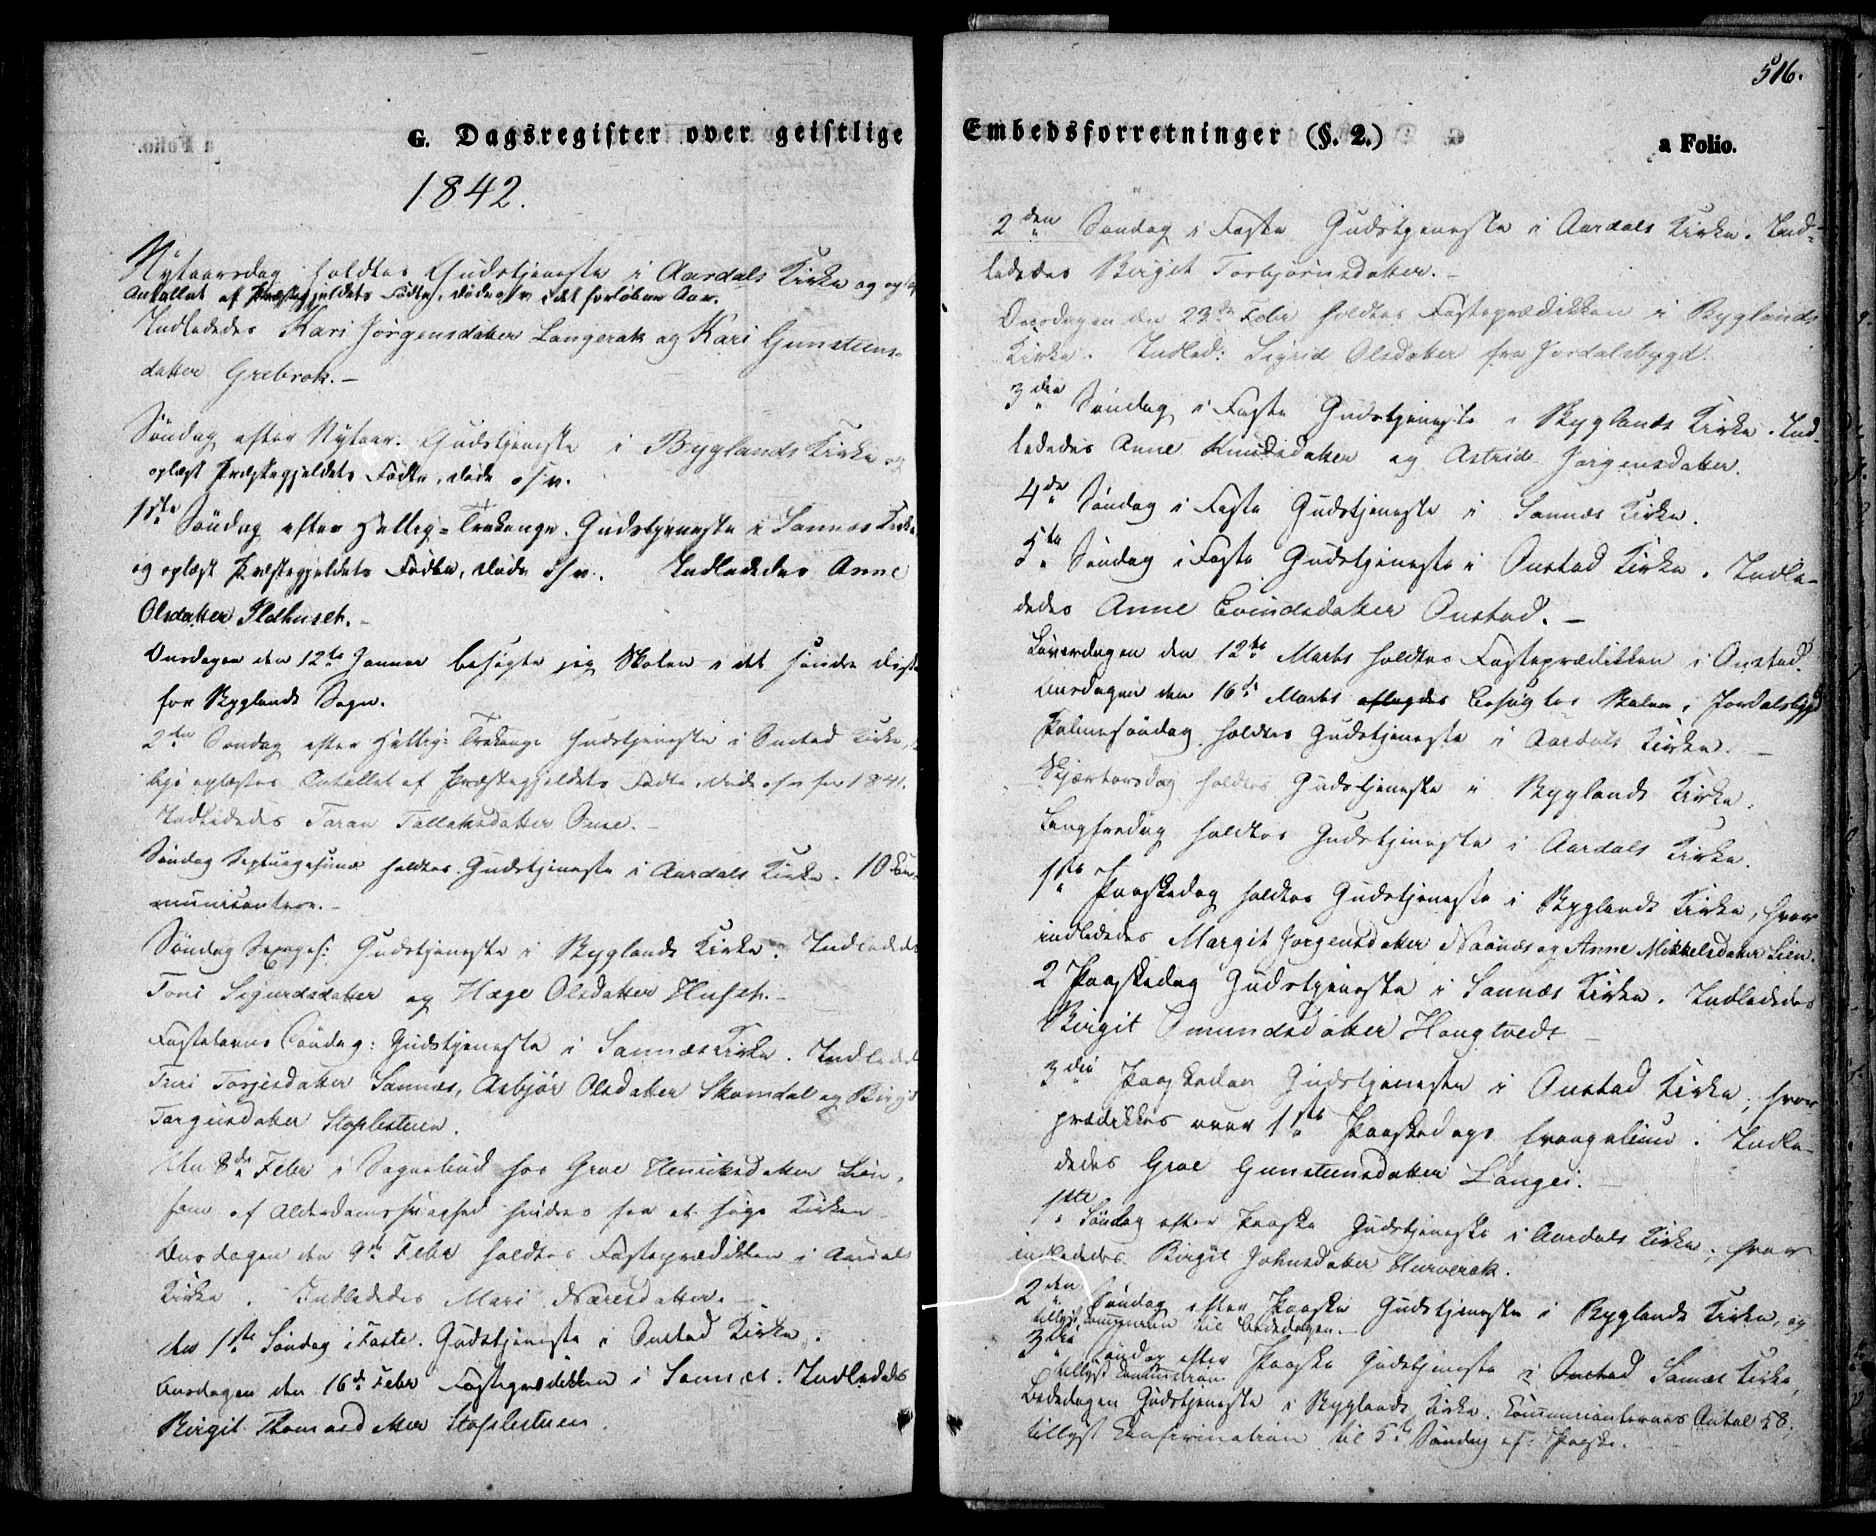 G. Dagsregister over geistlige
1842.
Nytaarsdag holdtes Gudstjeneste i Aardals Kirke og opl
Antallet af Præstegjeldets Fødte, Døde osv. i det forløbne Aar.
Indledes Kari Jørgensdatter Langerak og Kari Gunsteens-
datter Grebrok.-
Søndag efter Nytaar. Gudstjeneste i Byglands Kirke og
oplæst Præstegjeldets Fødte, Døde osv.
1ste Søndag efter Hellig-Trekonge. Gudstjeneste i Sannæs Kirke
og oplæst Præstegjeldets Fødte, Døde osv. Indledes Anne
Olsdatter Ildhuset.-
Onsdagen den 12te Januar besøgte jeg Skolen i det søndre Distr
for Byglands Sogn.
2den Søndag efter Hellig-Trekonge Gudstjeneste i Austad Kirke,
oplæstes Antallet af Præstegjeldets Fødte, Døde osv for 1841.
Indledes Taran Tallaksdatter Ouse.-
Søndag Septuagesima holdtes Gudstjeneste i Aardals Kirke. 10 Com-
municantere.-
Søndag Sexages: Gudstjeneste i Byglands Kirke. Indledes
Toni Sigurdsdatter og Hæge Olsdatter Huset.-
Fastelavns Søndag: Gudstjeneste i Sannæs Kirke. Indledes
Turi Torjesdatter Sannæs, Asbjør Olsdatter Skomdal og Birgit
Targusdatter Stoplestuen.
Den 8de Febr i Sognebud hos Groe Henriksdatter Lien,
som af Alderdomssvaghed hindres fra at søge Kirken
Onsdagen den 9de Febr holdtes Fasteprædikken i Aardal
Kirke. Indledes Mari Næresdatter.-
Den 1ste Søndag i Faste. Gudstjeneste i Austad Kirke.
Onsdagen den 16de Febr Fasteprædikken i Sannæs. Indledes
Birgit Thomasdatter Stoplestuen.
516.
Embedsforretninger (§. 2.)
a Folio.
2den Søndag i Faste Gudstjeneste i Aardals Kirke. Ind-
ledes Birgit Torbjørnsdatter.-
Onsdagen den 23de Febr holdtes Fasteprædikken i Byglands
Kirke. Indled: Sigrid Olsdatter fra Jordalsbygd.
3die Søndag i Faste Gudstjeneste i Byglands Kirke. Ind-
ledes Anne Knudsdatter og Astrid Jørgensdatter.
4de Søndag i Faste Gudstjeneste i Sannæs Kirke.
5te Søndag i Faste Gudstjeneste i Austad Kirke. Indle-
dedes Anne Evindsdatter Austad.-
Løverdagen den 12te Marts holdtes Fasteprædikken i Austad.
Onsdagen den 16de Marts aflagdes besøgtes Skolen i Jordalsbygd
Palmesøndag holdtes Gudstjeneste i Aardals Kirke.-
Skjærtorsdag holdtes Gudstjeneste i Byglands Kirke.
Langfredag holdtes Gudstjeneste i Aardals Kirke.
1ste Paaskedag holdtes Gudstjeneste i Byglands Kirke, hvor
indledes Margit Jørgensdatter Naanæs og Anne Mikkelsdatter Lien.
2 Paaskedag Gudstjeneste i Sannæs Kirke. Indledes
Birgit Omundsdatter Hougtvedt
3die Paaskedag Gudstjeneste i Austad Kirke, hvor
prædikkes over 1ste Paaskedags Evangelium. Indle-
dedes Groe Gunsteensdatter Langei.-
1ste Søndag efter Paaske Gudstjeneste i Aardals Kirke, hvor
indledes Birgit Johnsdatter Hurverak.
2den Søndag efter Paaske Gudstjeneste i Byglands Kirke, og
tillyst Communion til Bededagen.-
3die Søndag efter Paaske Gudstjeneste i Austad Sannæs Kirke,
tillyst Communion
Bededagen Gudstjeneste i Byglands Kirke. Communicanternes Antal 58.
tillyst Confirmation til 5te Søndag ef: Paaske.